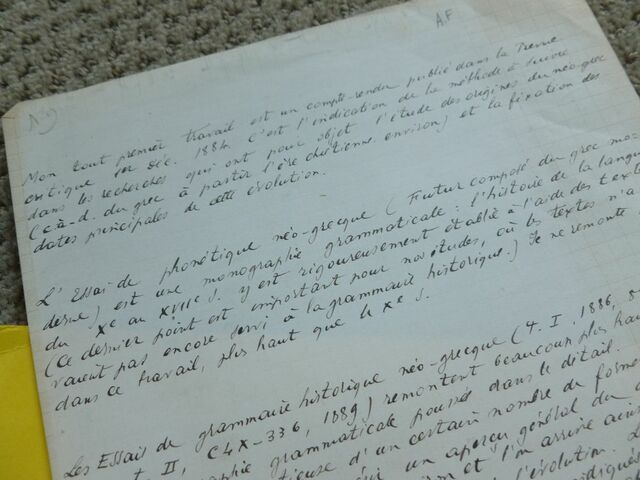 A.F
Mon tout premier travail est un compte-rendu publié dans la Revue
critique 1er Déc. 1884. C'est l'indication de la méthode à suivre
dans les recherches qui ont pour objet l'étude des origines du néo-grec
(c.à-d. du grec à partir l'ère chrétienne environ) et la fixation des
dates principales de cette évolution.
L'Essai de phonétique néo-grecque (Futur composé du grec mo
derne) est une monographie grammaticale : l'histoire de la langue
du Xe au XVIIe s. y est rigoureusement établie à l'aide des textes
(Ce dernier point est important pour nos études, où les textes n'a
vaient pas encore servi à la grammaire historique.) Je ne remonte
dans ce travail, plus haut que le Xe s.
Les Essais de grammaire historique néo-grecque (t. I, 1886,
t II, CLX-336, 1889) remontent beaucoup plus hau
graphie grammaticale poussée dans le détail.
tieuse d'un certain nombre de forme
un aperçu général du
et l'on arrive ains
l'évolution.